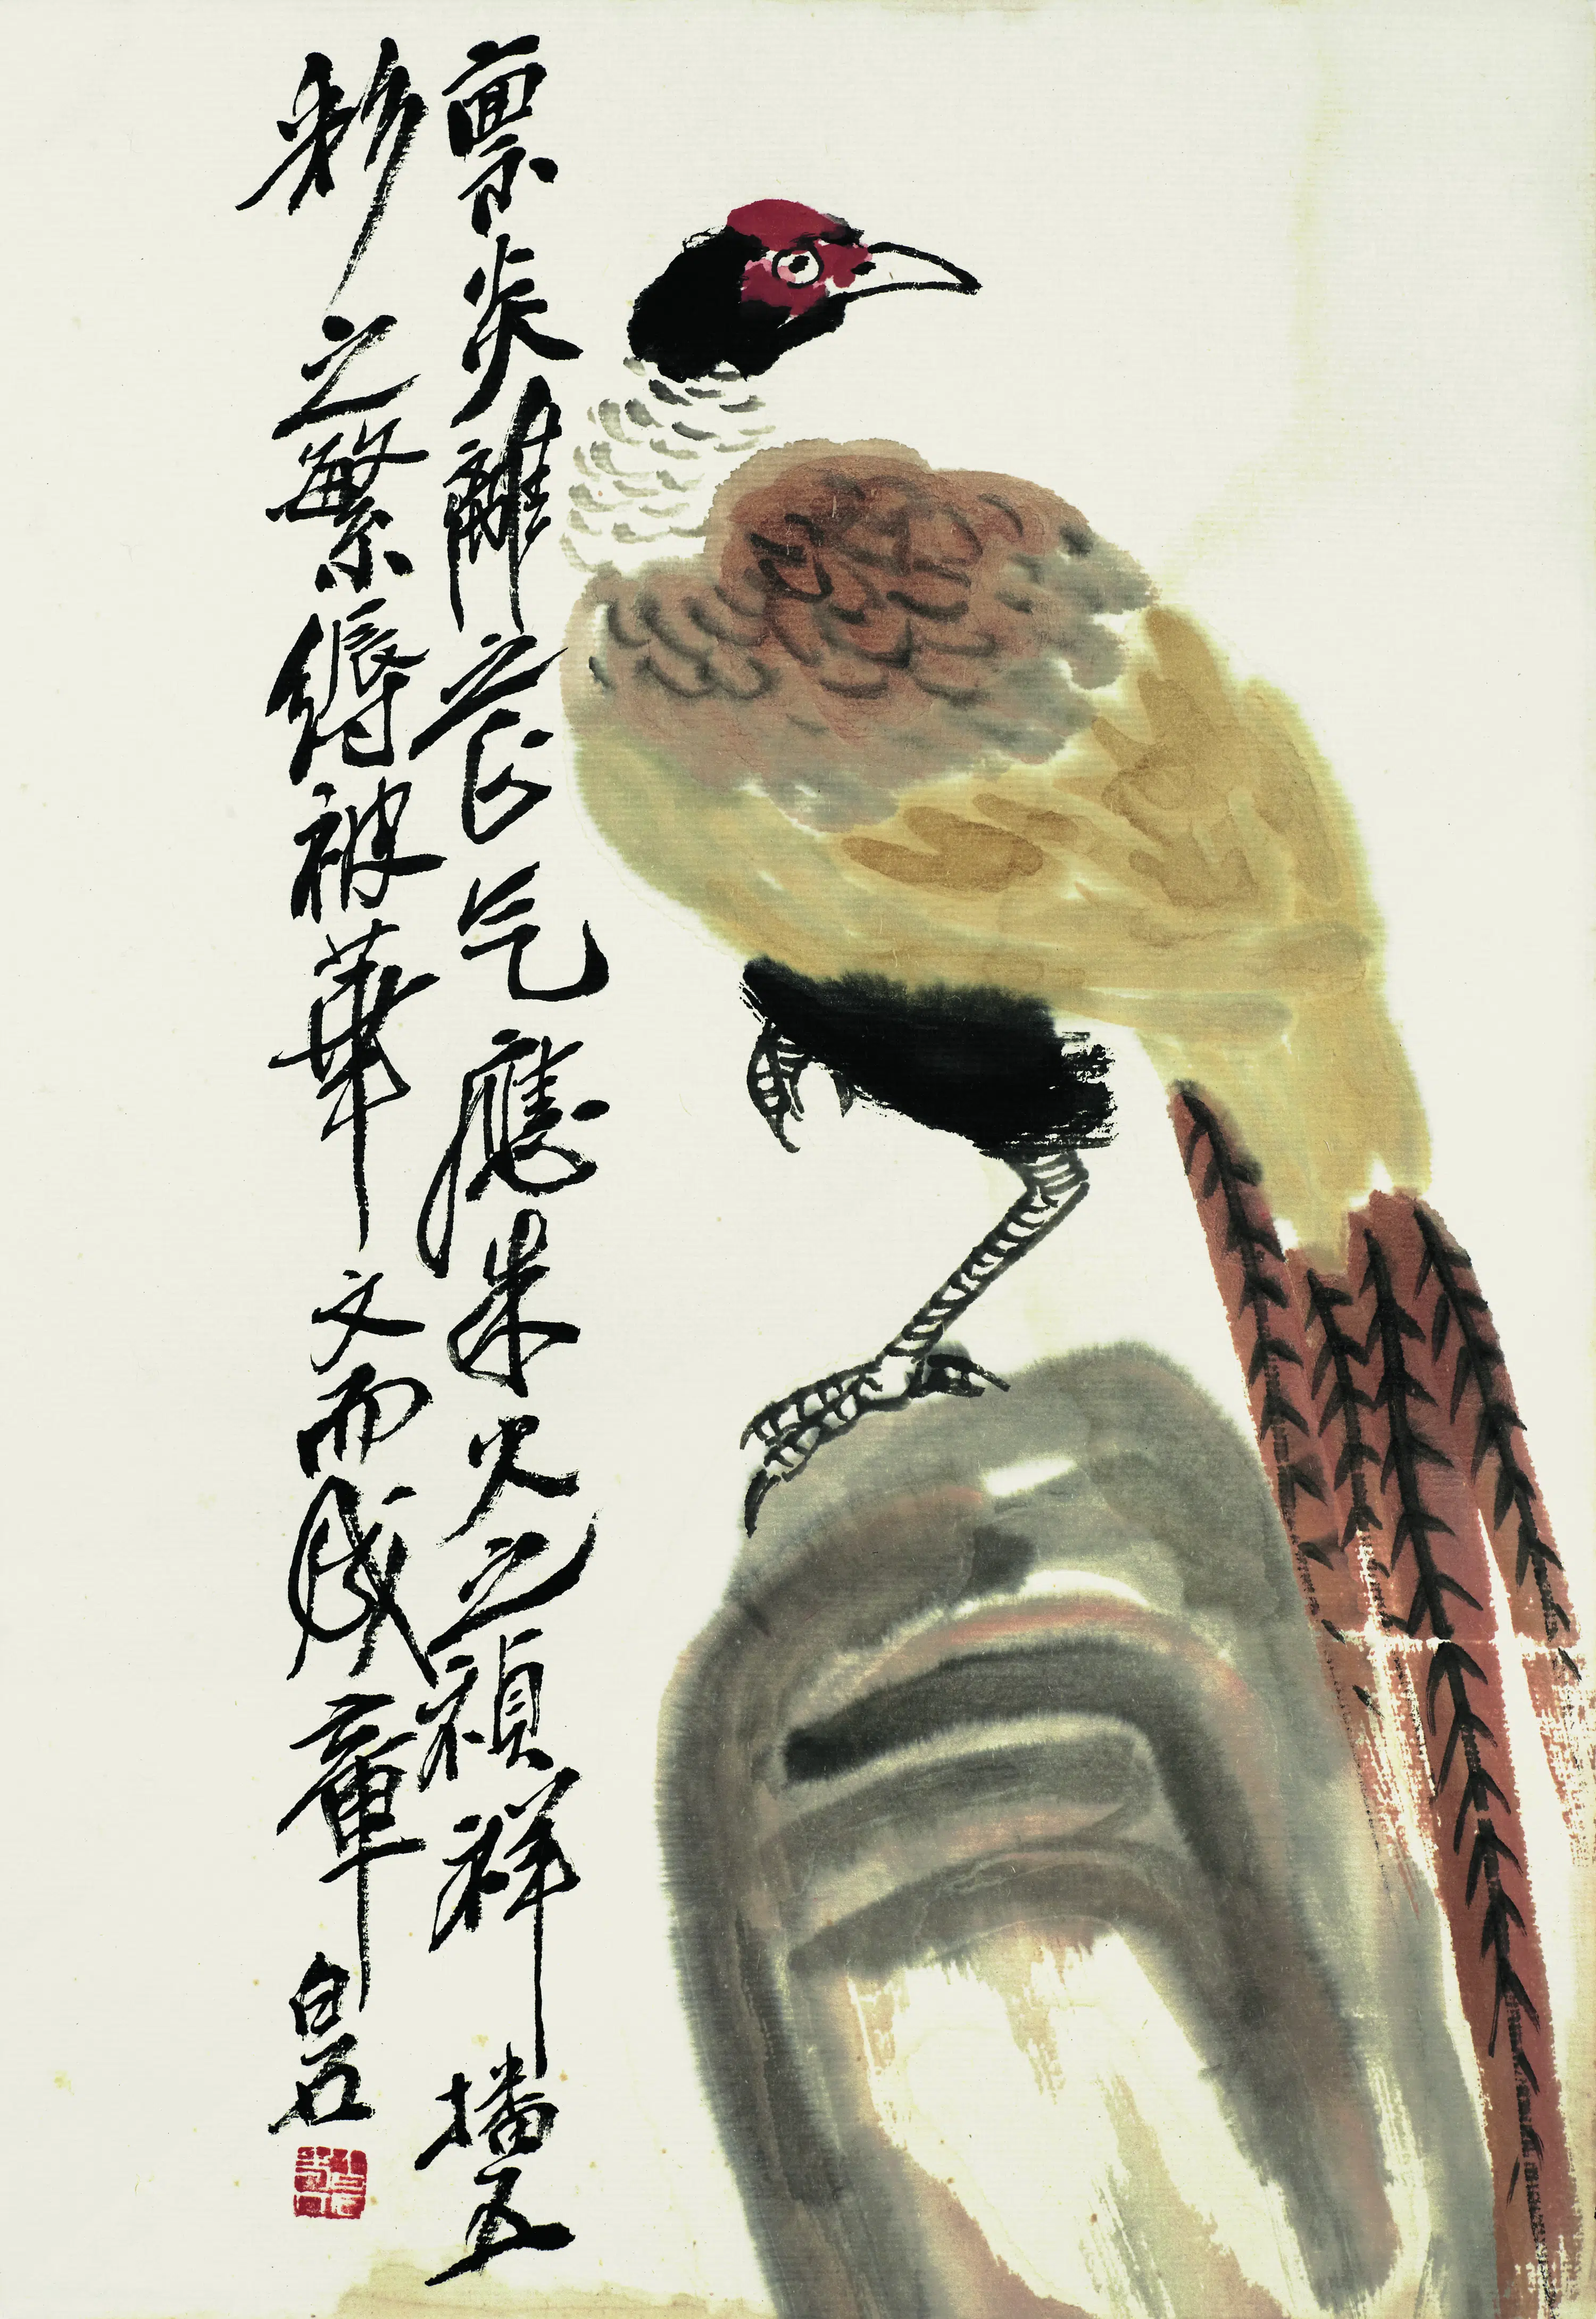 禀炎離之正气應朱火之禎祥播五
彩之繁縟被華文而成章白石